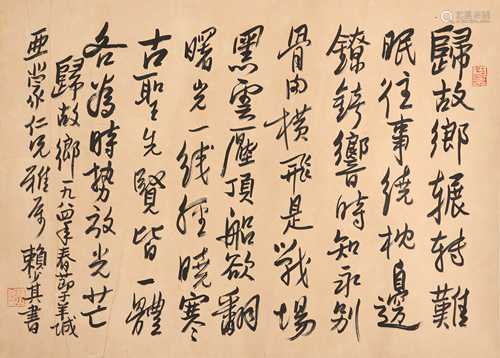 歸故鄉輾轉難
眠往事繞枕邊
鐐銬響時知永別
骨肉橫飛是戰場
黑雲壓頂船欲翻
曙光一线經曉寒
古聖先賢皆一體
各為時勢放光芒
歸故鄉一九八四年春節羊城
亞蒙仁兄雅屬 賴少其書